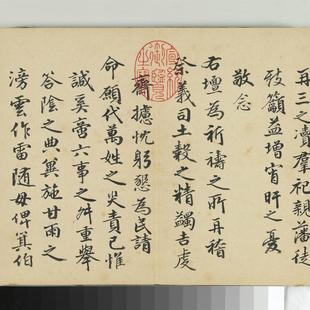 再三之瀆羣祀親藩徒
籲益增宵旰之憂
敬念
右壇為祈禱之所再稽
祭義司土穀之精蠲吉虔
齋攄忱躬懇為民請
命願代萬姓之災責己惟
誠奚啻六事之舛重舉
答陰之典冀施甘雨之
滂雲作雷隨毋俾箕伯